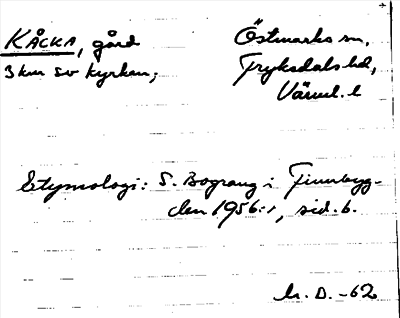 KÅCKA, gård Östmarks sn,
3 km sv kyrkan; Fryksdals hd,
Värml. l
Etymologi: S. Bograng i Finnbyg-
den 1956:1, sid. 6.
D. -62